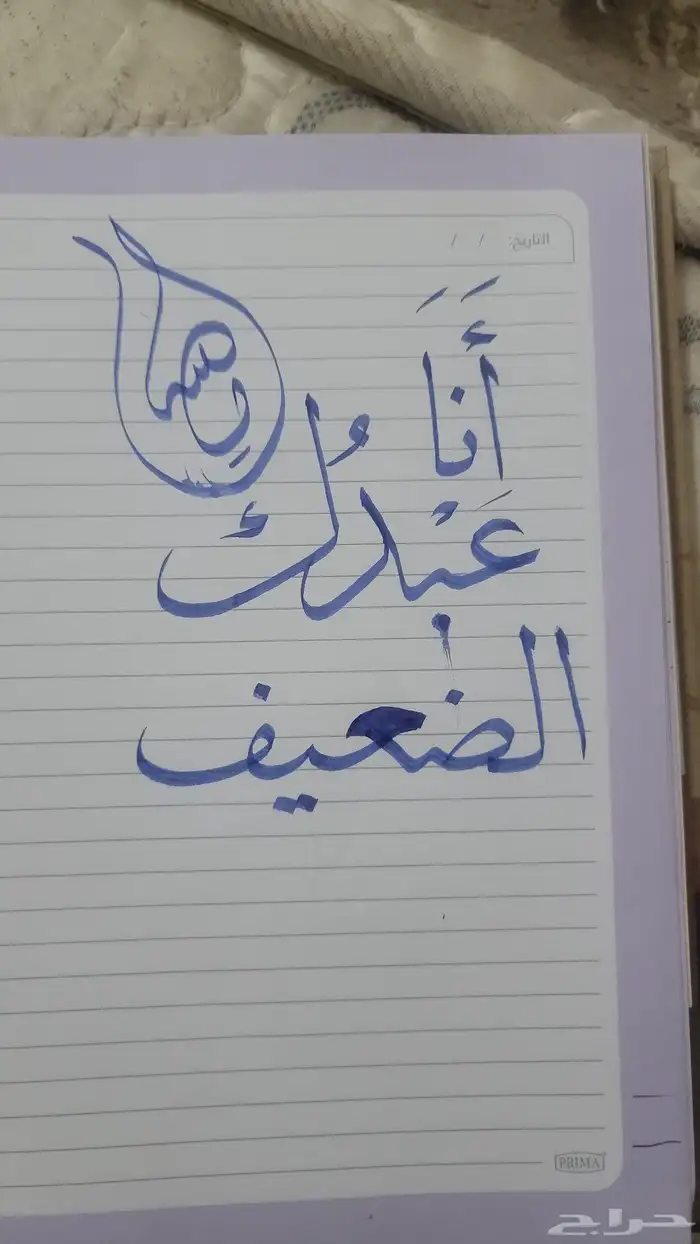 التاريخ: / /
أَنَا
عَبْدُك
الضعيف
PRIMA
حراج